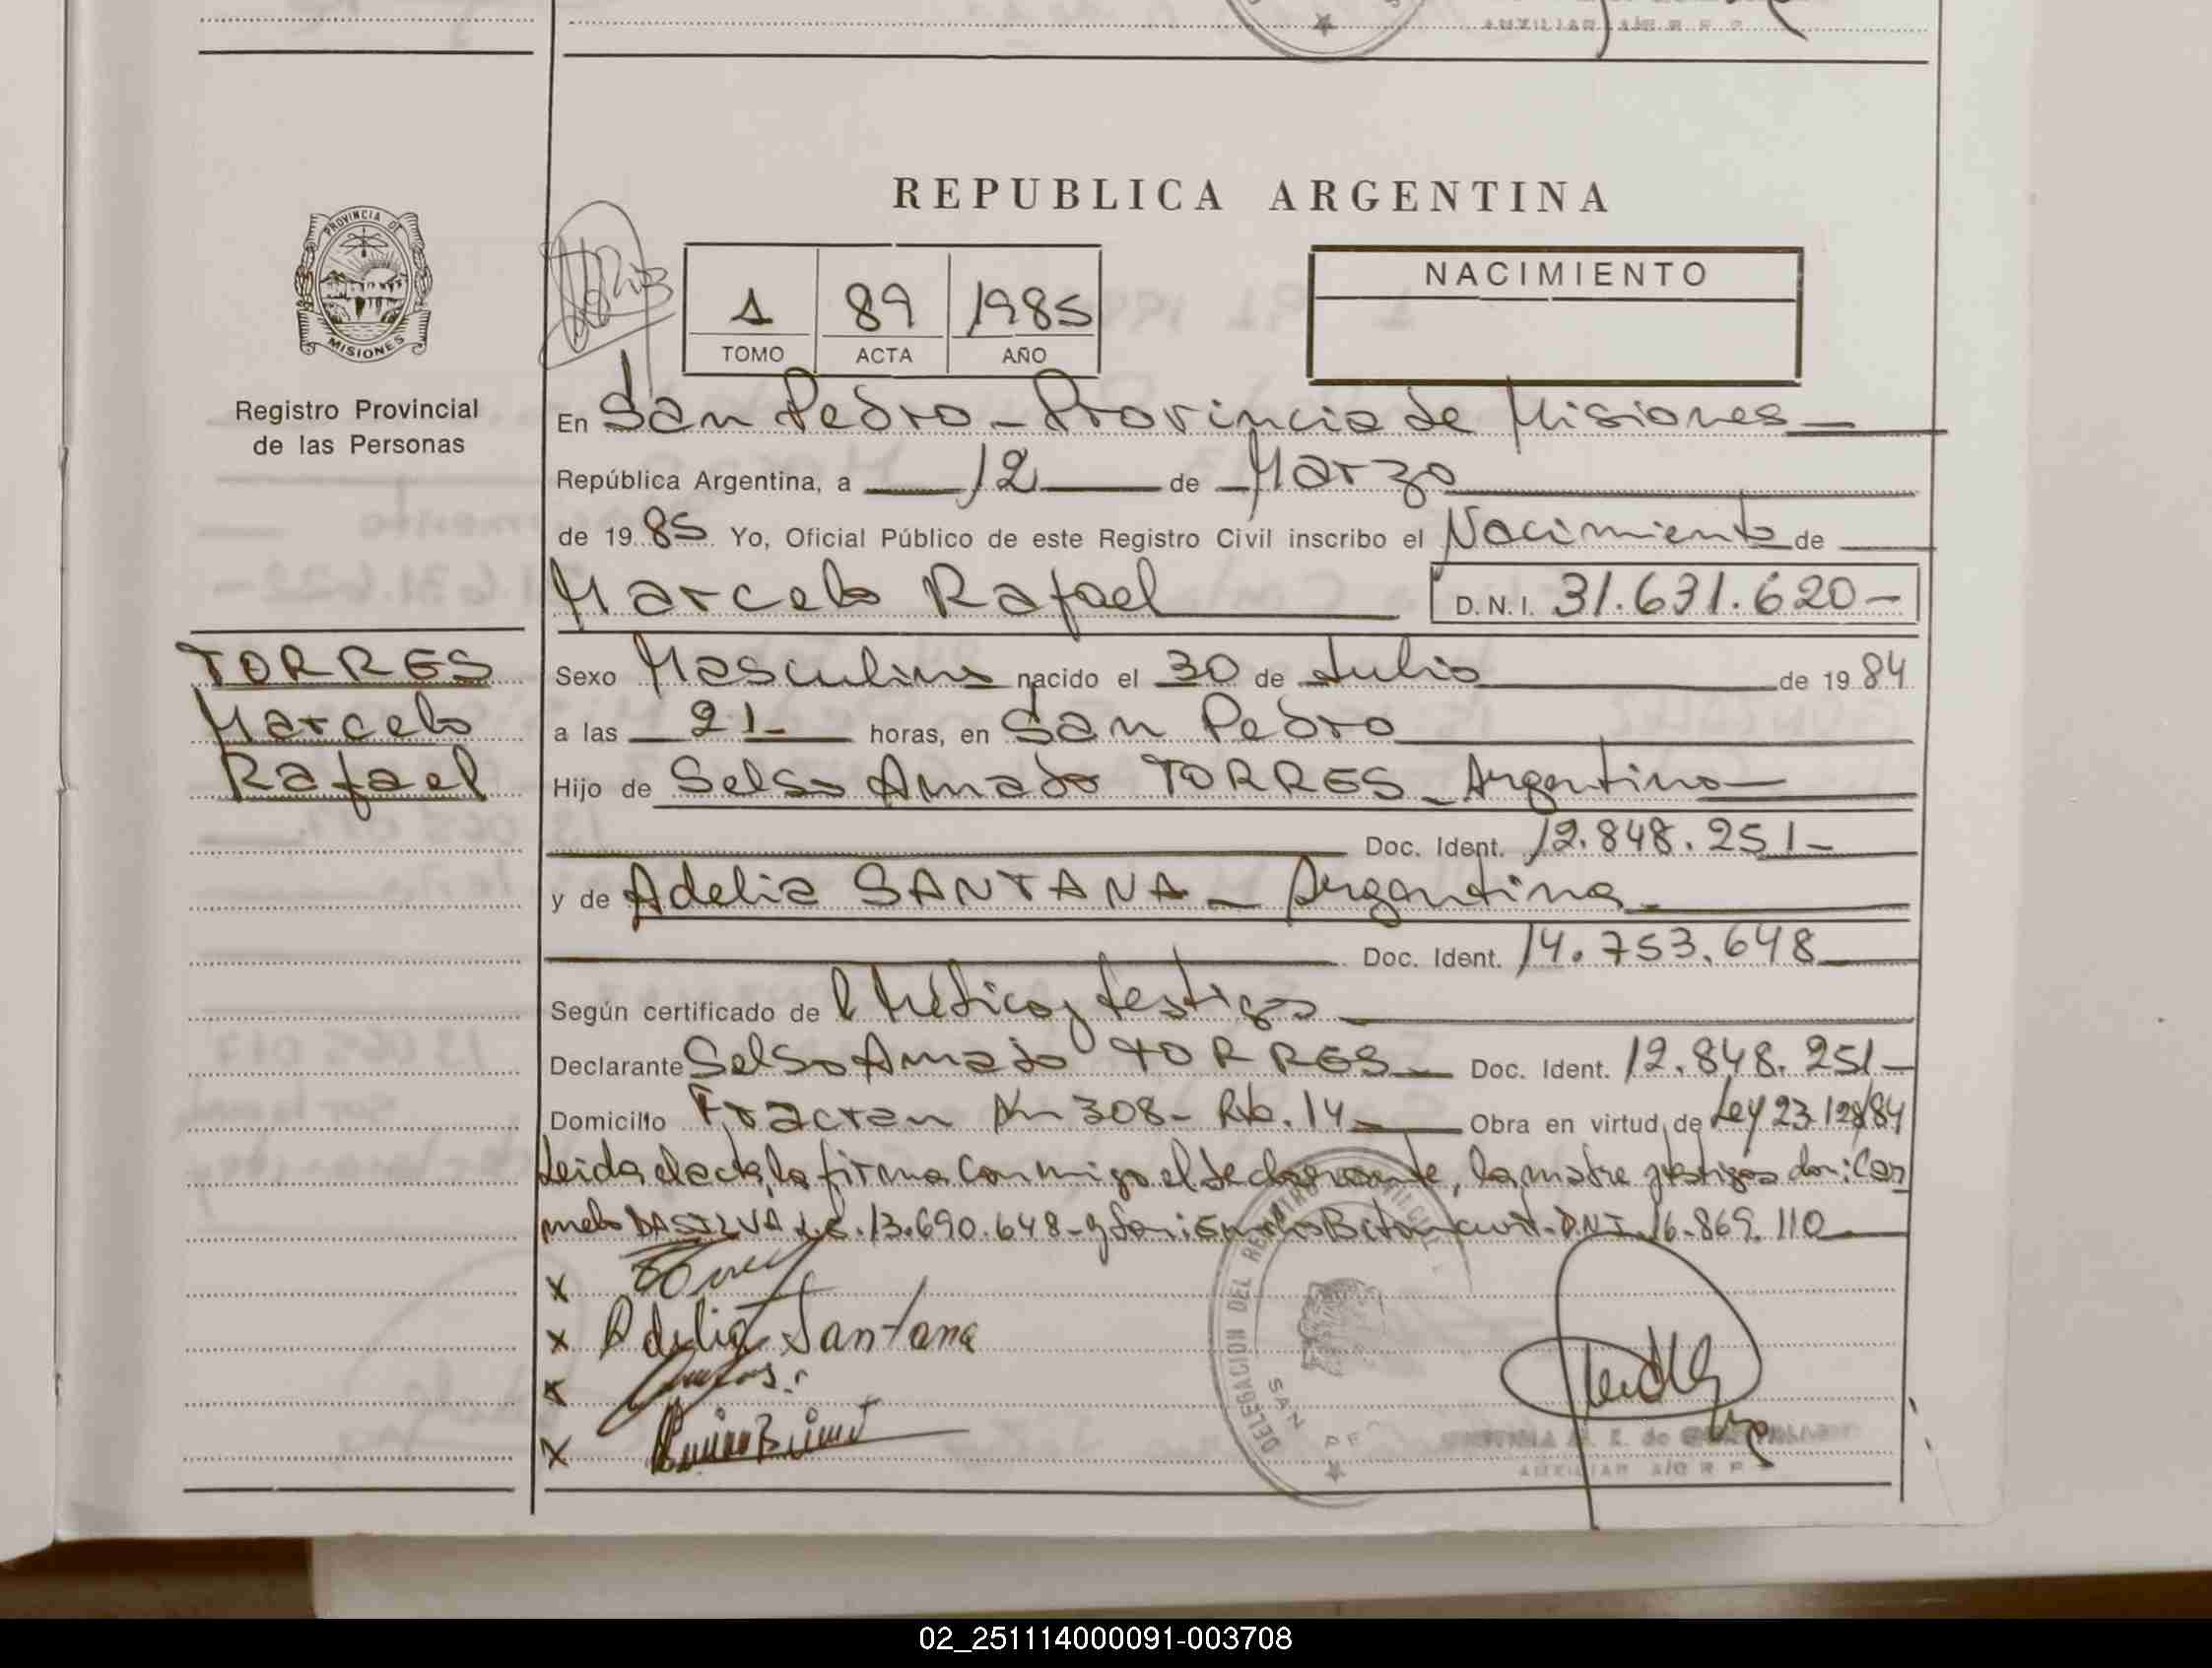 AUXILIAR A/C R P P
REPUBLICA ARGENTINA
PROVINCIA DE MISIONES
1 89 1985
TOMO ACTA AÑO
NACIMIENTO
Registro Provincial
de las Personas
En San Pedro - Provincia de Misiones
República Argentina, a 12 de Marzo
de 1985 Yo, Oficial Público de este Registro Civil inscribo el Nacimiento de
Marcelo Rafael D.N.I. 31.631.620-
TORRES
Marcelo
Rafael
Sexo Masculino nacido el 30 de Julio de 1984
a las 21- horas, en San Pedro
Hijo de Selso Amado TORRES - Argentino
Doc. Ident. 12.848.251-
y de Adelia SANTANA - Argentina
Doc. Ident. 14.753.648
Según certificado de l Médico y testigos
Declarante Selso Amado TORRES Doc. Ident. 12.848.251-
Domicilio Fracran Km 308- Rta. 14 Obra en virtud de Ley 23.128/84
Leida el acta, la firma conmigo el declarante, la madre y testigos don: Car
melo DA SILVA 13.690.648- y don: Betancurt - D.N.I. 16.869.110
x
x Adelia Santana
x
x
DELEGACION DEL REGISTRO PROVINCIAL
SAN PE
AUXILIAR A/C R P P
02_251114000091-003708